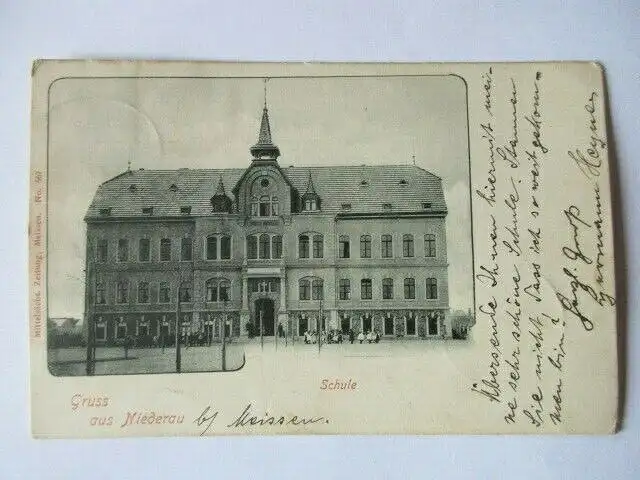 Mittelsächs. Zeitung, Meissen. No. 567
Schule
Gruss
aus Niederau b/ Meissen.
Übersende Ihnen hiermit mei-
ne sehr schöne Schule. Staunen
Sie nicht, dass ich so weit gekom-
men bin?
Hrzl. Gruß
Hermann Heyne